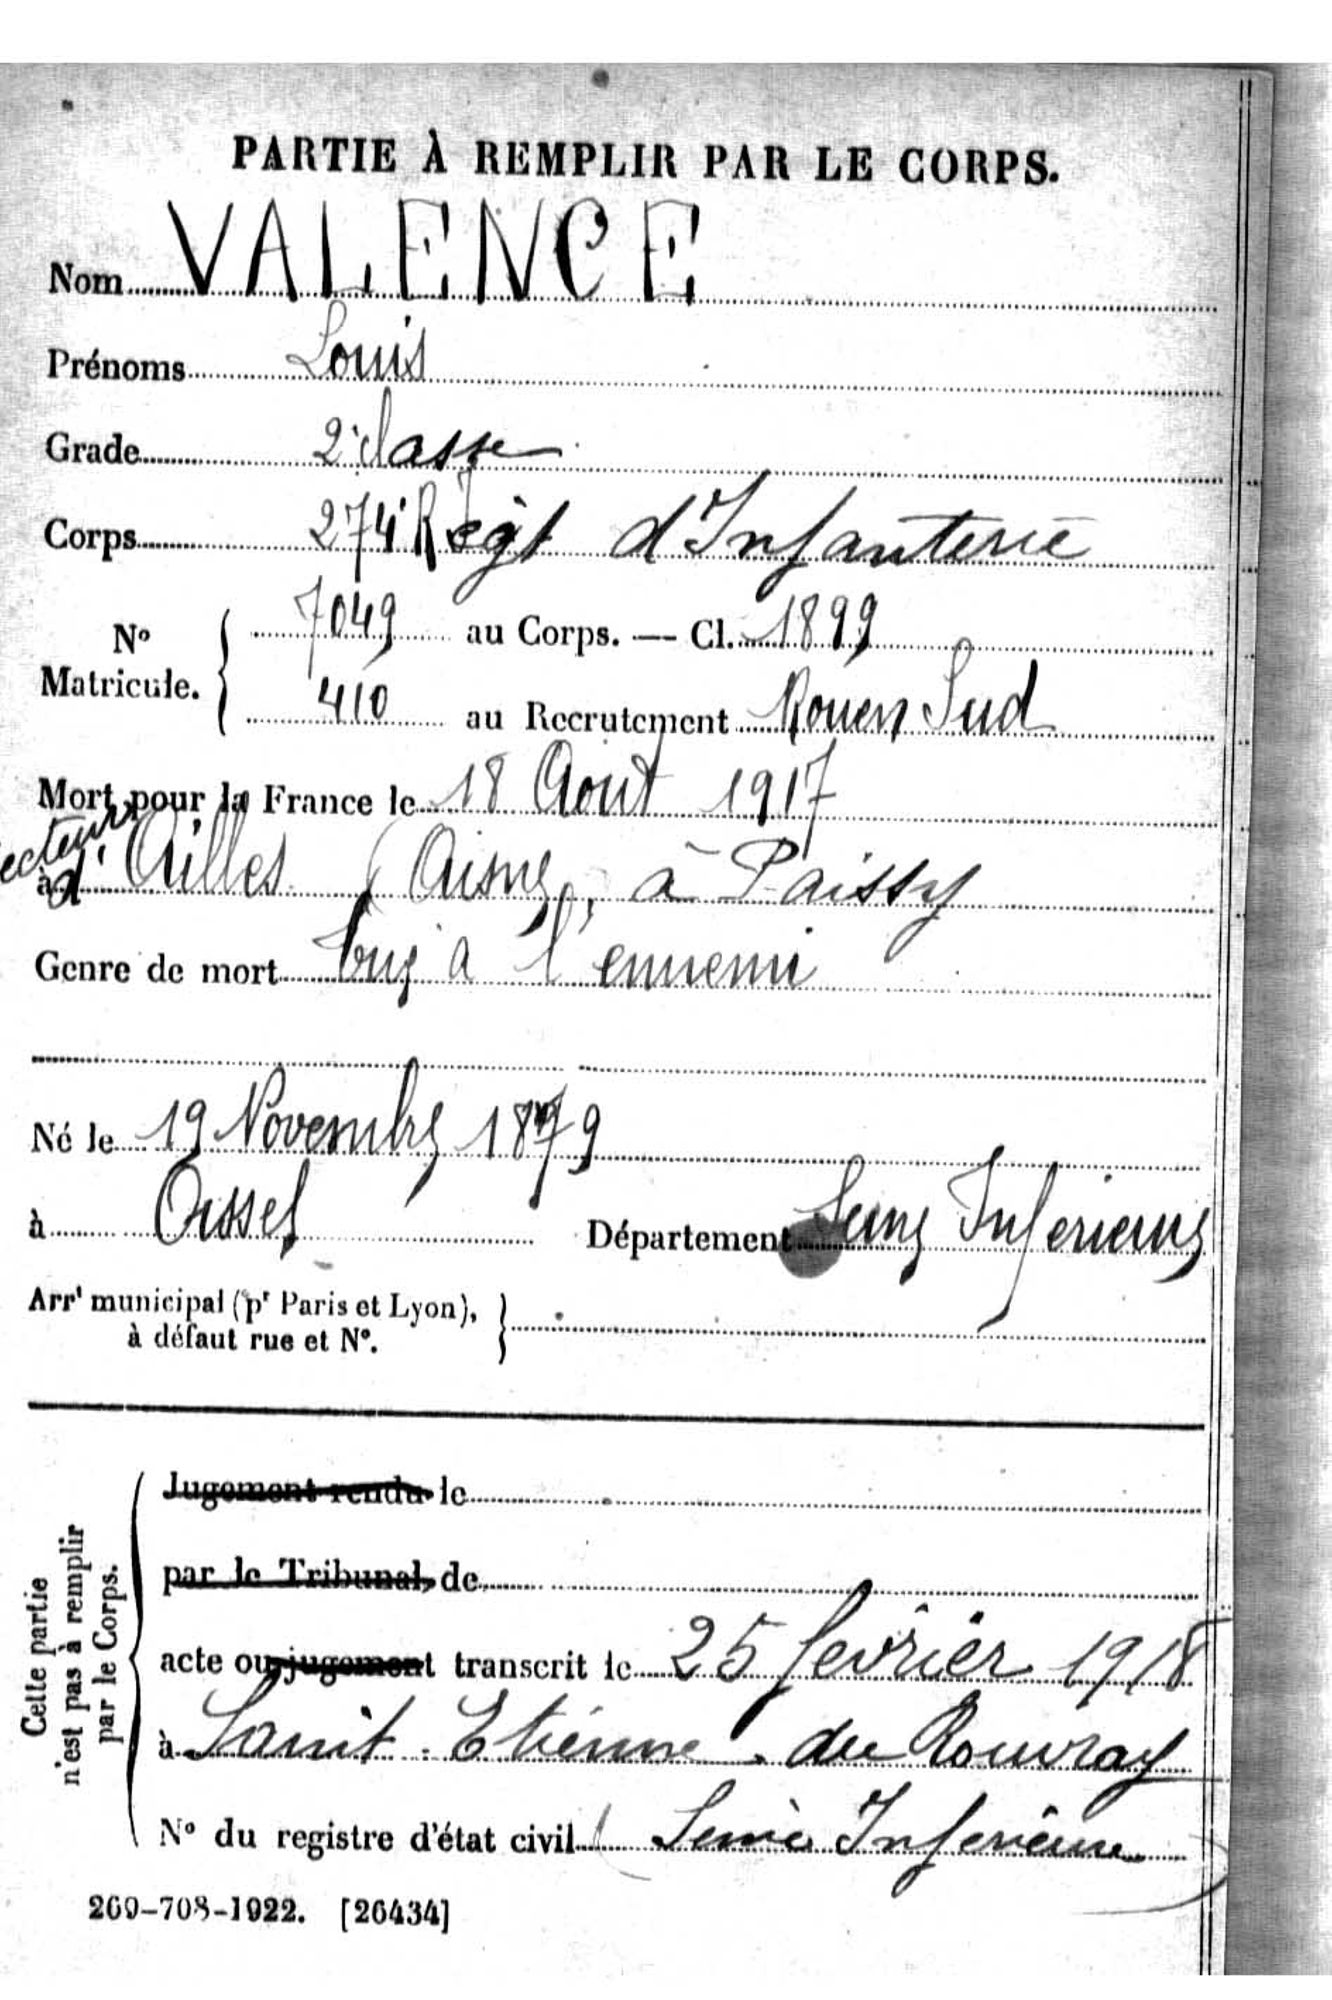 PARTIE À REMPLIR PAR LE CORPS.
Nom VALENCE
Prénoms Louis
Grade 2e classe
Corps 274e Régt d'Infanterie
No Matricule. { 7049 au Corps. — Cl. 1899
410 au Recrutement Rouen Sud
Mort pour la France le 18 Août 1917
à secteur d'Ailles (Aisne, à Paissy
Genre de mort tué à l'ennemi
Né le 19 Novembre 1879
à Oissel Département Seine Inférieure
Arrt municipal (pr Paris et Lyon), }
à défaut rue et No.
Cette partie
n'est pas à remplir
par le Corps.
Jugement rendu le
par le Tribunal de
acte ou jugement transcrit le 25 février 1918
à Saint-Etienne-du Rouvray
No du registre d'état civil (Seine Inférieure)
269-708-1922. [26434]